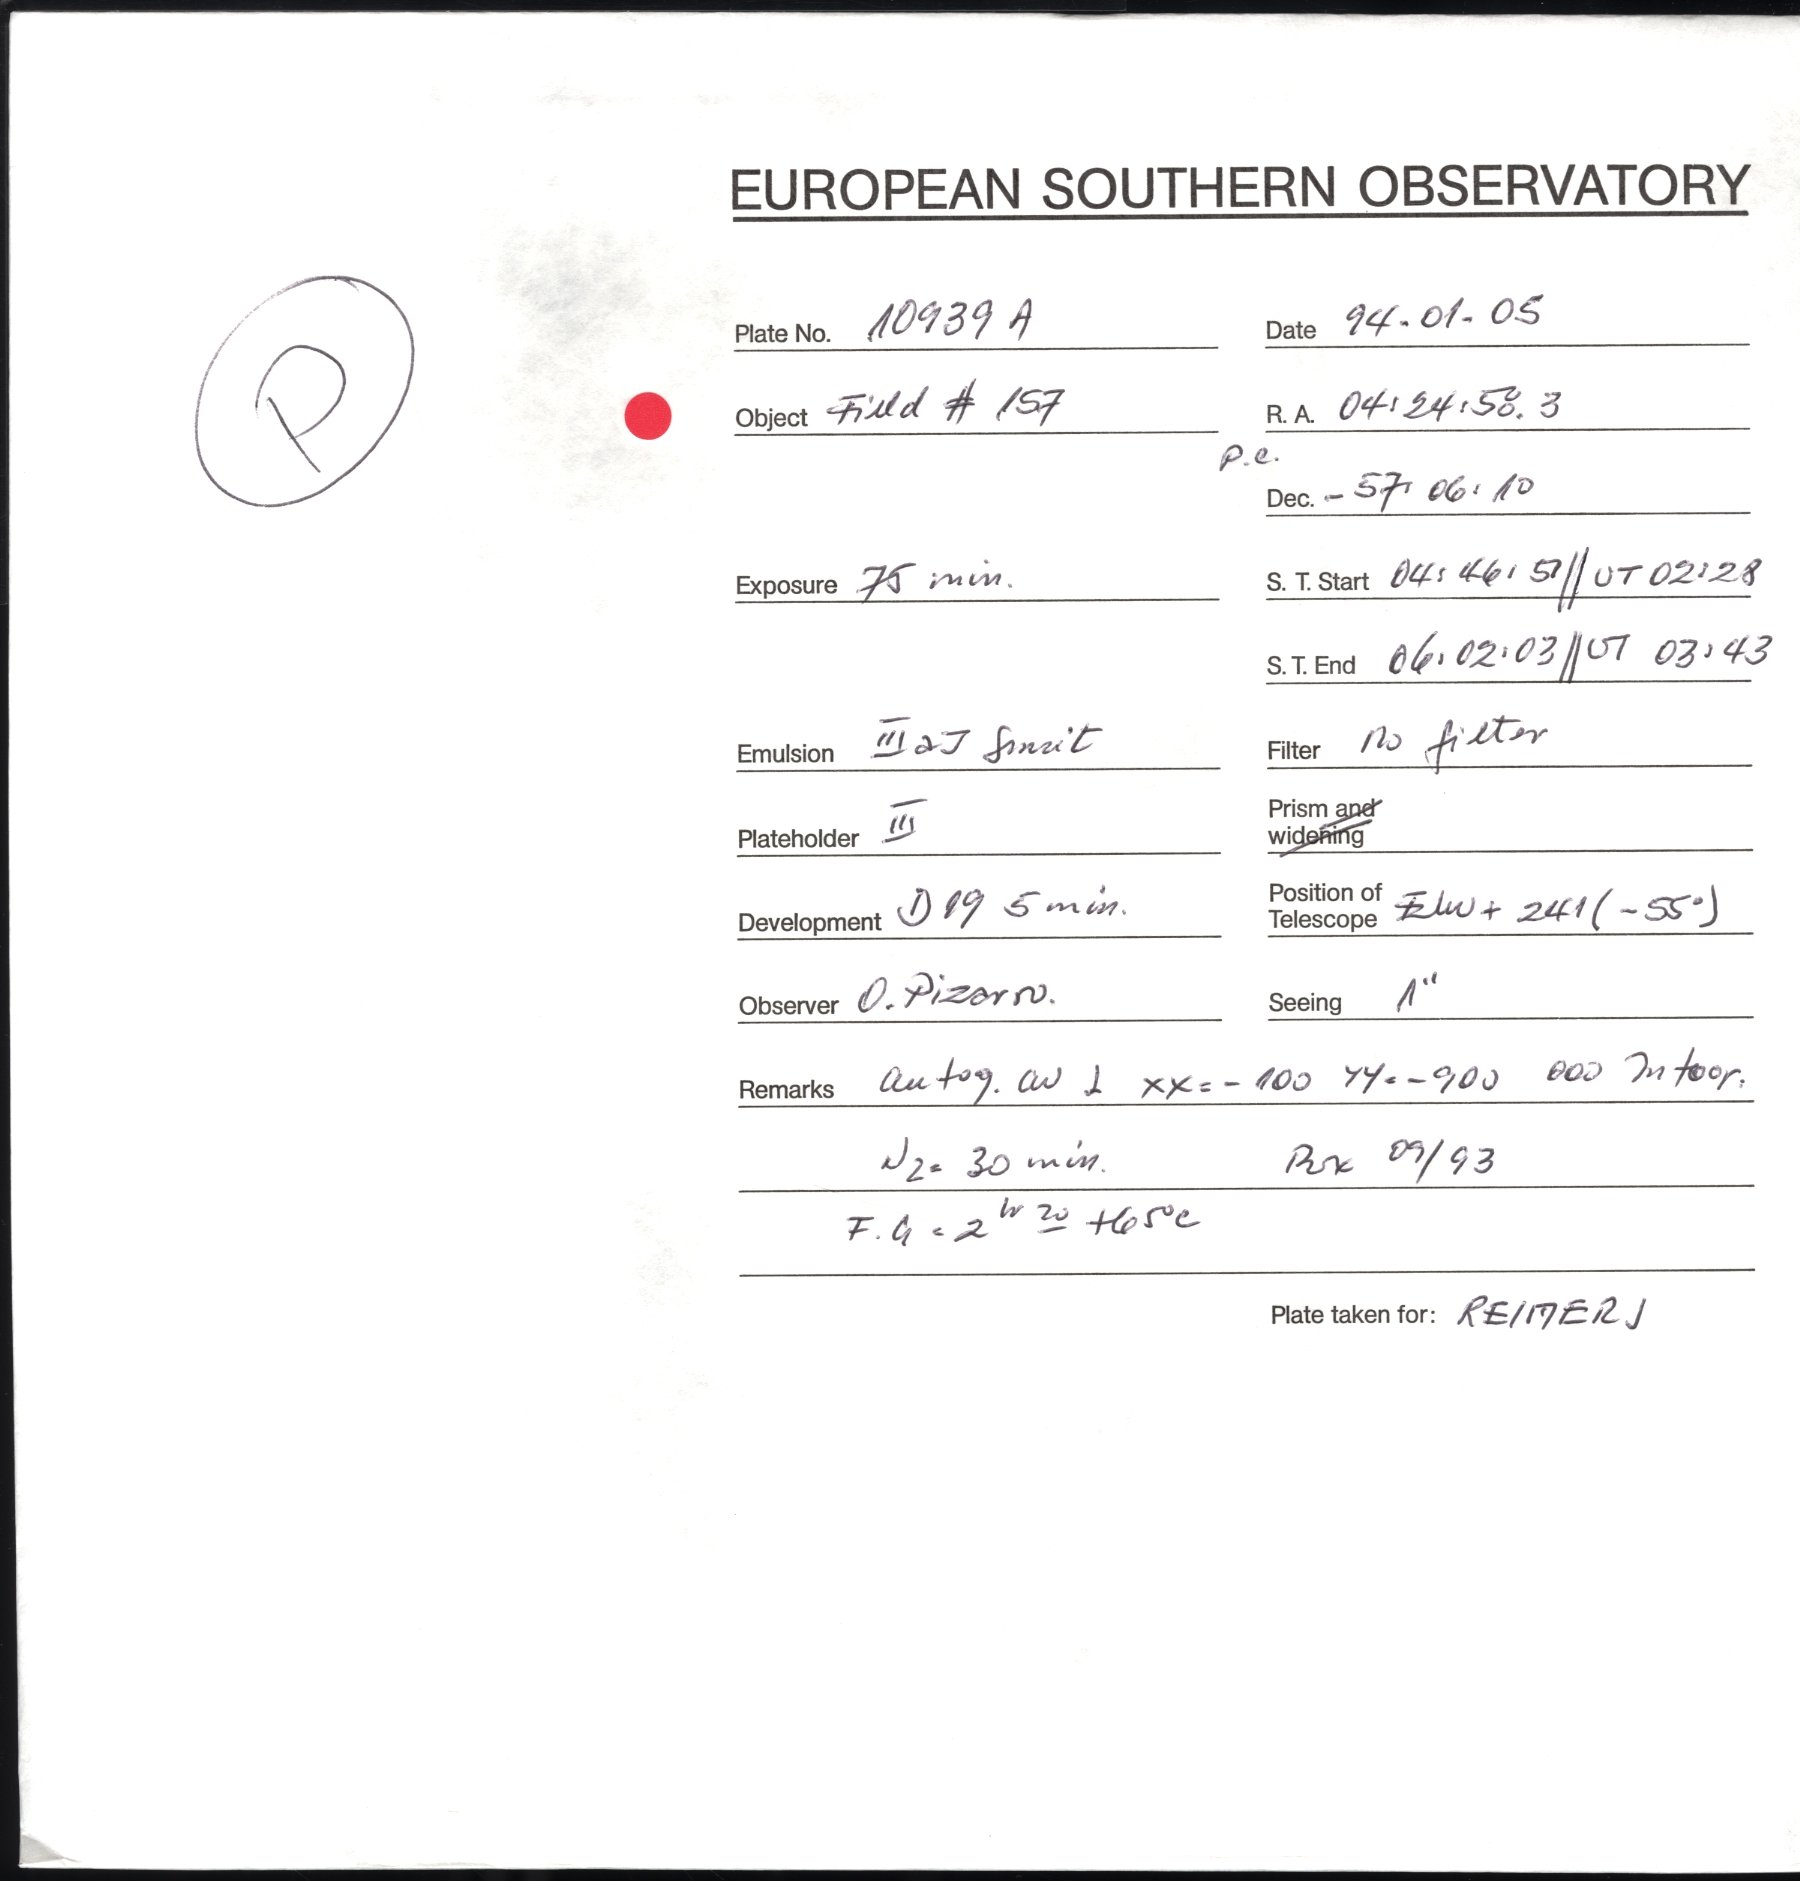 EUROPEAN SOUTHERN OBSERVATORY
P
Plate No. 10939 A
Date 94-01-05
Object Field # 157
R. A. 04:24:58.3
P.C.
Dec. - 57:06:10
Exposure 75 min.
S. T. Start 04:46:51 // UT 02:28
S. T. End 06:02:03 // UT 03:43
Emulsion III aJ
Filter no filter
Plateholder III
Prism and
widening
Development D19 5 min.
Position of
Telescope + 241 (-55°)
Observer O. Pizarro.
Seeing 1"
Remarks autog. xx = - 100 YY = - 900 000
N2 = 30 min. 09/93
F.G = 2 hr 20 +65°C
Plate taken for: REIMERS